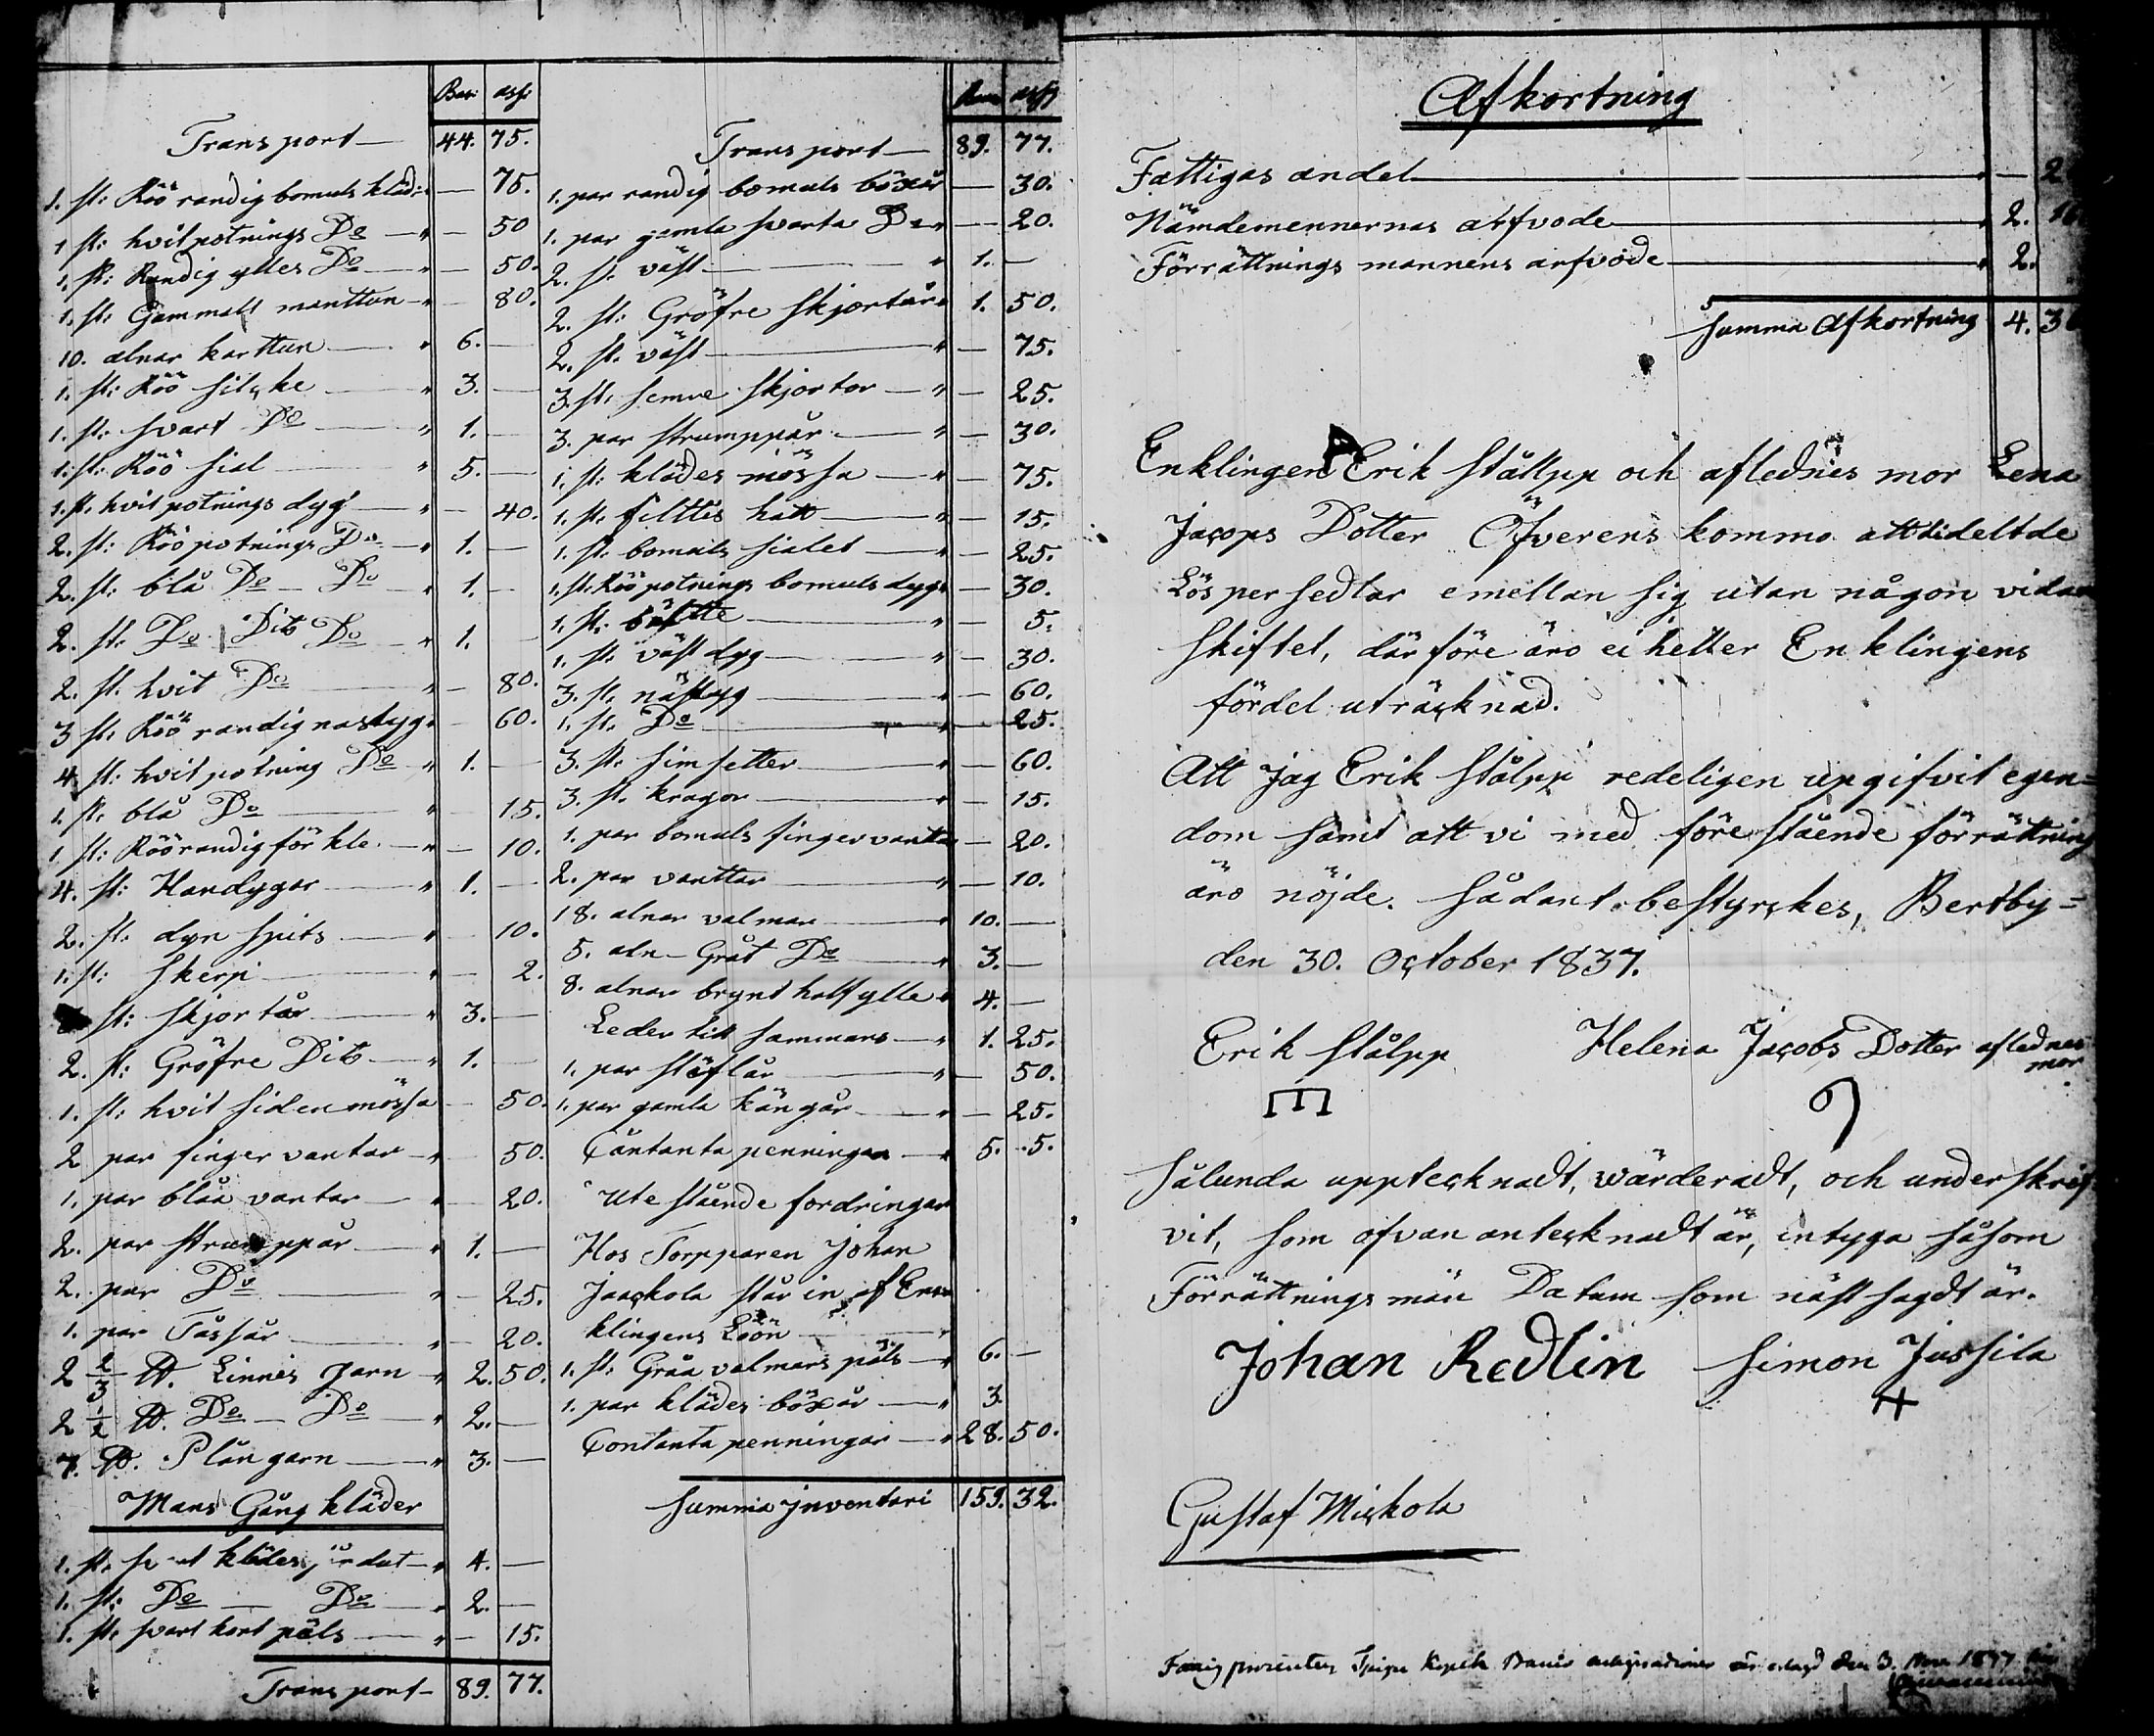 Transport — 44. 75.
1. st: Röö randig bomuls kläd: — 75.
1 st: hvit potnings Do — " — 50
1. st: Randig ylles Do — " — 50.
1. st: Gammalt manttun " — 80.
10. alnar karttun — " 6. —
1. st: Röö silcke — " 3. —
1. st: svart Do — " 1. —
1. st: Röö sial " 5. —
1. st. hvit potnings dyg — " — 40.
2. st: Röö potnings Do — " 1. —
2. st: blå Do — Do " 1. —
2. st: Do Dito Do — " 1. —
2. st. hvit Do " — 80.
3 st. Röö randig nastyg " — 60.
4. st: hvit potning Do " 1. —
1. st. blå Do " 15.
1 st: Röörandig för kle. — " — 10.
4. st: Handygar — " 1. —
2. st: dyn spits — " 10.
1. st: Skerp " — 2.
st: skjortår — " 3. —
2. st: Gröfre Dito — " 1. —
1. st: hvit siden mössa — 50.
2 par finger vantar — " 50.
1. par blåa vantar — " 20.
2. par strumppår — " 1. —
2. par Do — " — 25.
1. par Tåssår — " — 20.
2 2/3 ℔. Linnes garn " 2. 50.
2 1/2 ℔. Do — Do — " 2. —
7. ℔. Plån garn — " 3. —
Mans Gång kläder
1. st. klädes — " 4. —
1. st: Do — Do — " 2. —
1. st. svart kort päls — " — 15.
Transport — 89. 77.
Transport — 89. 77.
1. par randig bomuls böxår — 30.
1. par gamla svarta Do " — 20.
2. st. väst — " 1. —
2. st: Gröfre skjortår " 1. 50.
2. st. väst — " — 75.
3. st. semre skjortor — " — 25.
3. par strumppår — " — 30.
1. st: klädes mössa — " — 75.
1. st. filttis hatt — " — 15.
1. st: bomuls sialet — " — 25.
1. st: Röö potnings bomuls dyg " — 30.
1. st: bältte — " — 5.
1. st. väst dyg — " — 30.
3. st. nästyg — " — 60.
1. st. Do — " — 25.
3. st. simsetter — " — 60.
3. st. kragor — " — 15.
1. par bomuls finger vantar — 20.
2. par vanttar — " — 10.
18. alnar valmar — " 10. —
5. aln — Gråt Do — " 3. —
8. alnar brynt halfylle " 4. —
Leder till sammans — " 1. 25.
1. par stöflår " — 50.
1. par gamla kängår — " — 25.
Contanta penningar — " 5. 5.
Utestående fordringar
Hos Torpparen Johan
Jaackola står in af Enn
klingens Löön " 6. —
1. st: Gråa valmars päls — "
1. par klädes böxår — " 3.
Contanta penningar — " 28. 50.
Summa jnventari 159. 32.
Afkortning
Fattigas andel — " —
Nämdemennernas arfvode — " 2. 16
Förrättnings mannens arfvode — " 2.
Summa Afkortning 4. 36
Enklingen Erik Stålpp och aflednes mor Lena
Jacops Dotter Öfverens kommo att tideltde
Lös persedlar emellan sig utan någon vidar
skiftet, därföre äro ei heller Enklingens
fördel uträcknad.
Att Jag Erik Stålpp redeligen upgifvit egen=
dom samt att vi med förestående förrättning
äro nöjde. Sådant bestyrckes, Bertby=
den 30. October 1837.
Erik Stålpp Helena Jacobs Dotter aflednes
mor
Sålunda upptecknadt, wärderadt, och underskrif
vit, som ofvan antecknadt är, intyga såsom
Förrättnings män Datum som näst sagdt är.
Johan Redlin Simon Jussila
Gustaf Mickola
den 3. Nov. 1837